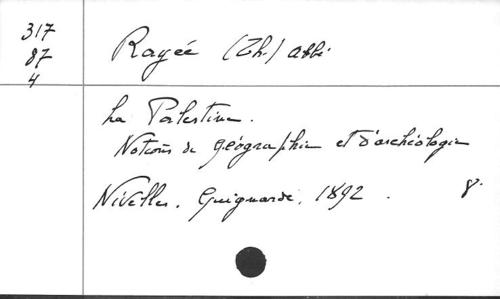 317
87
4
Rayée (Th.) abbé
La Palestine.
Notions de géographie et d'archéologie
Nivelles, Guignarde, 1892. 8°